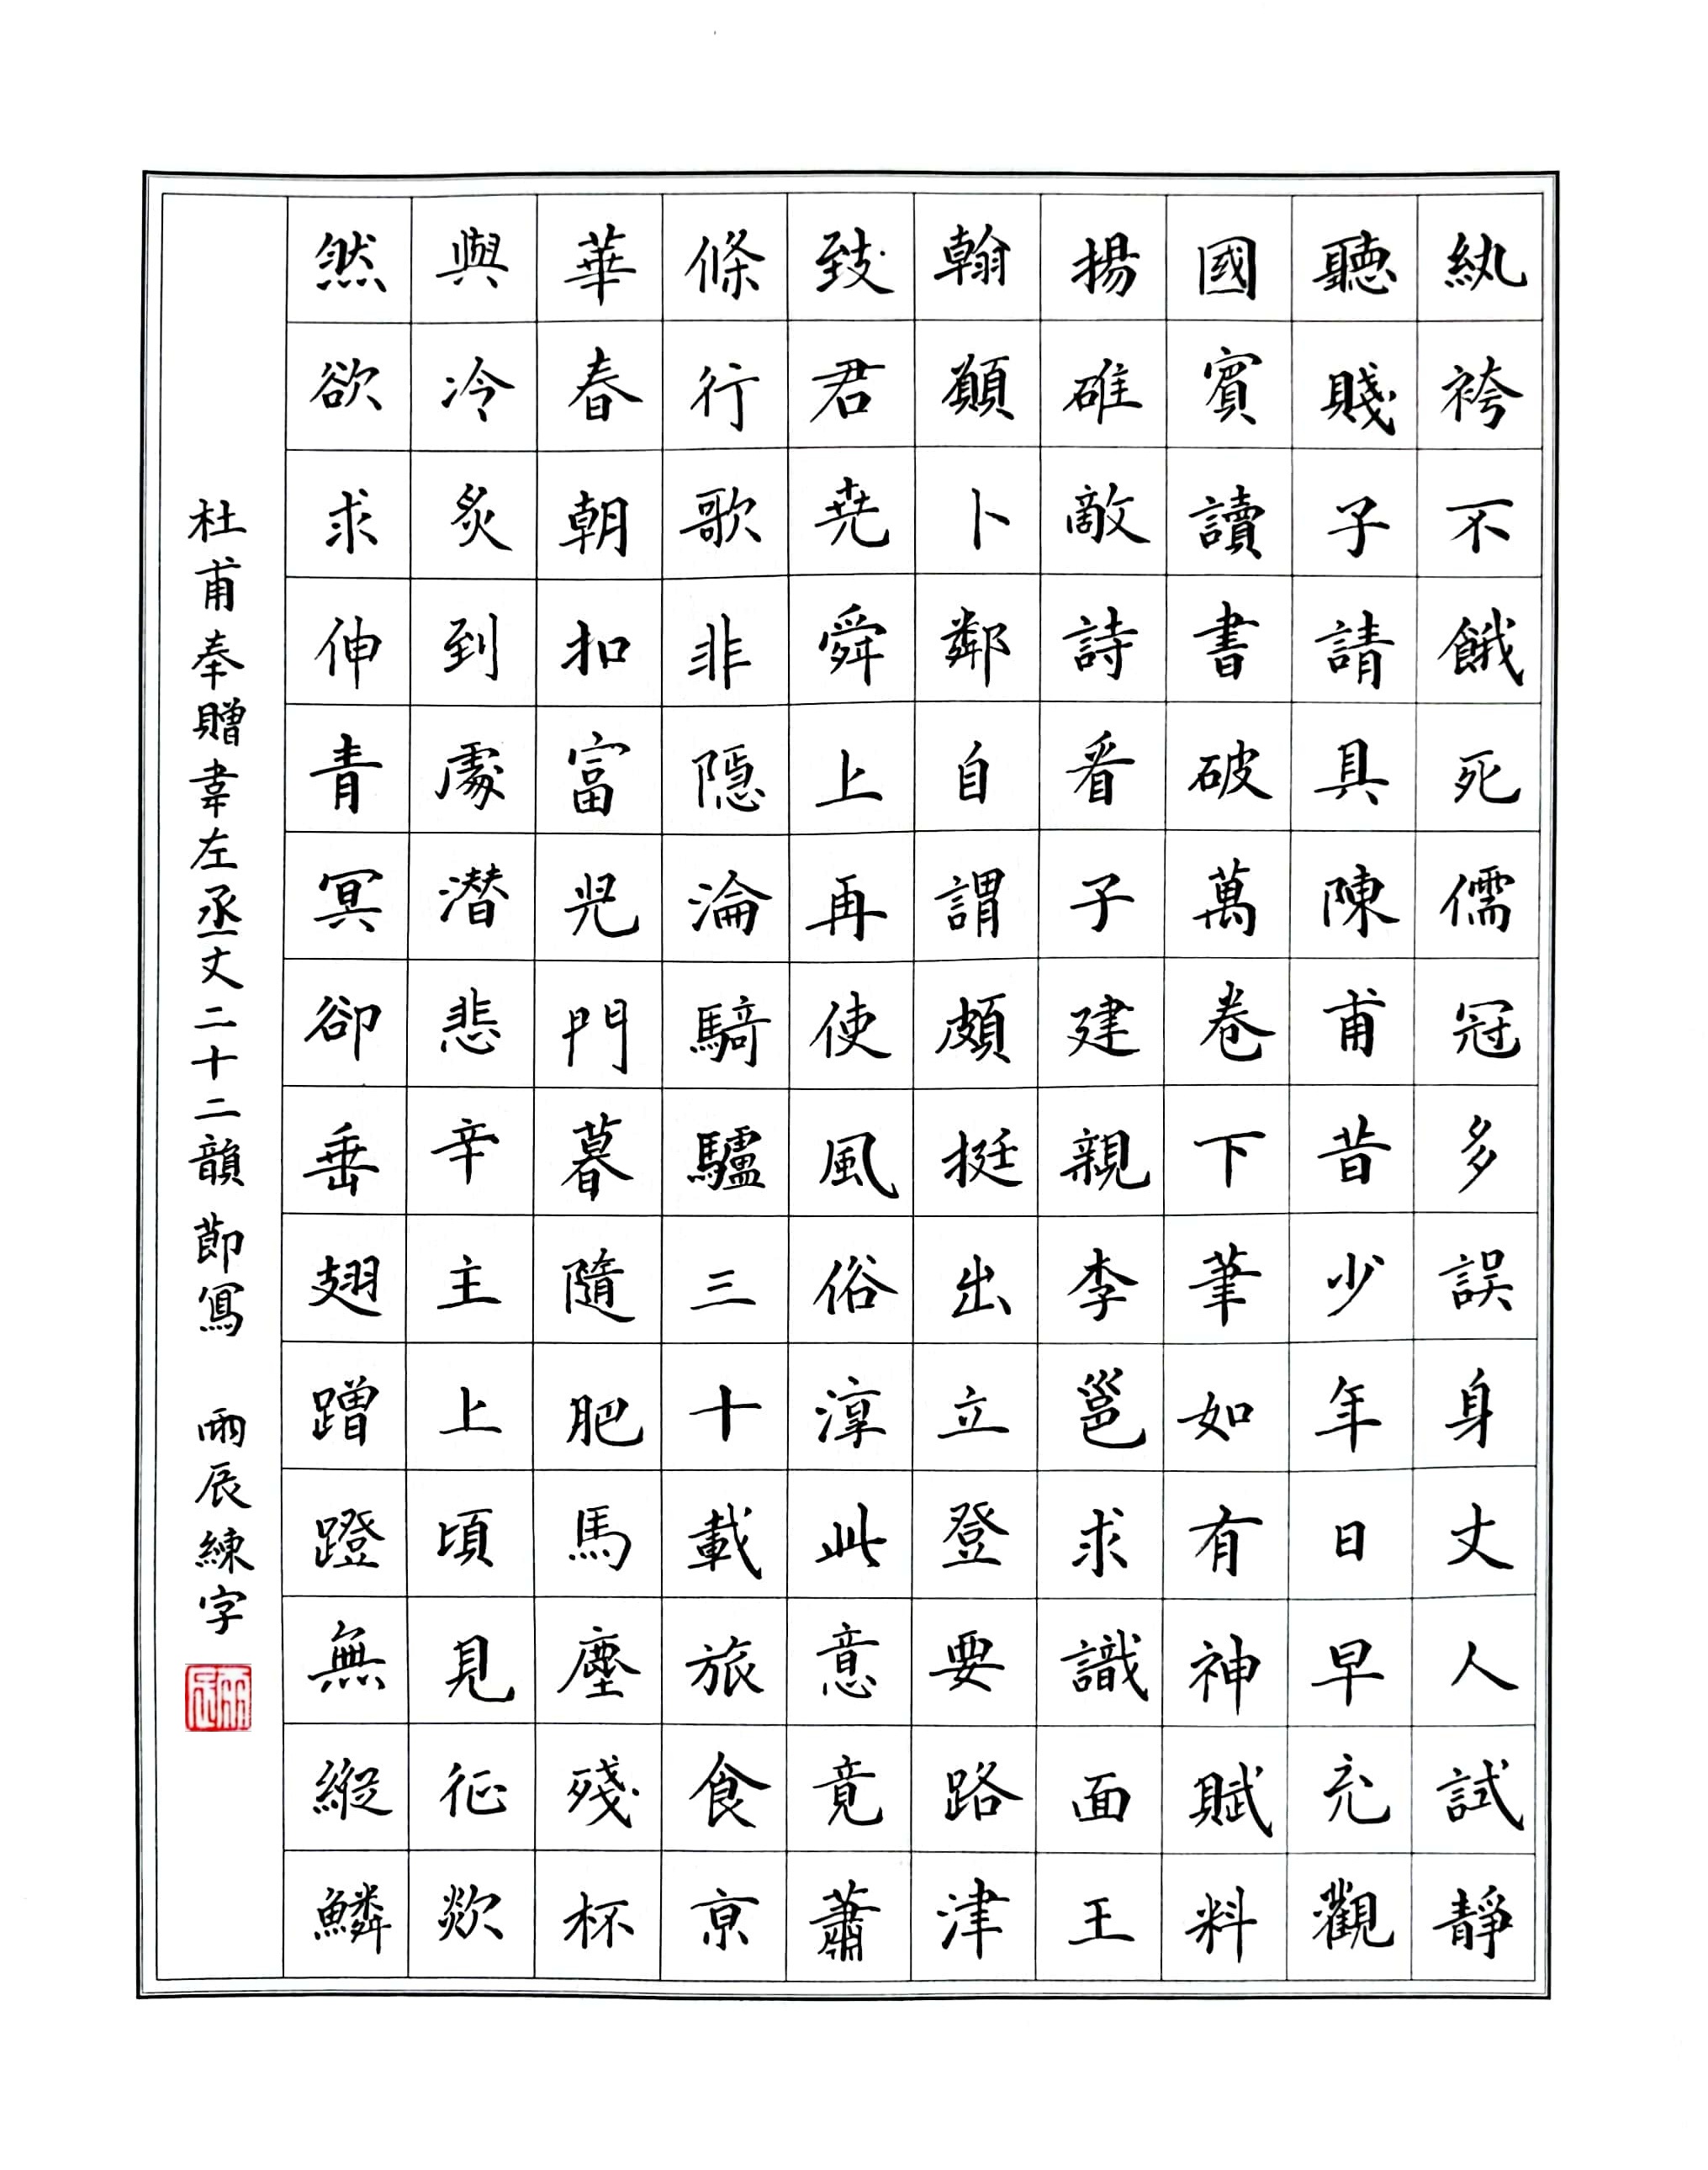 紈袴不餓死儒冠多誤身丈人試靜
聽賤子請具陳甫昔少年日早充觀
國賓讀書破萬卷下筆如有神賦料
揚雄敵詩看子建親李邕求識面王
翰願卜鄰自謂頗挺出立登要路津
致君堯舜上再使風俗淳此意竟蕭
條行歌非隱淪騎驢三十載旅食京
華春朝扣富兒門暮隨肥馬塵殘杯
與冷炙到處潛悲辛主上頃見征欻
然欲求伸青冥卻垂翅蹭蹬無縱鱗
杜甫奉贈韋左丞丈二十二韻 節寫 雨辰練字
雨辰